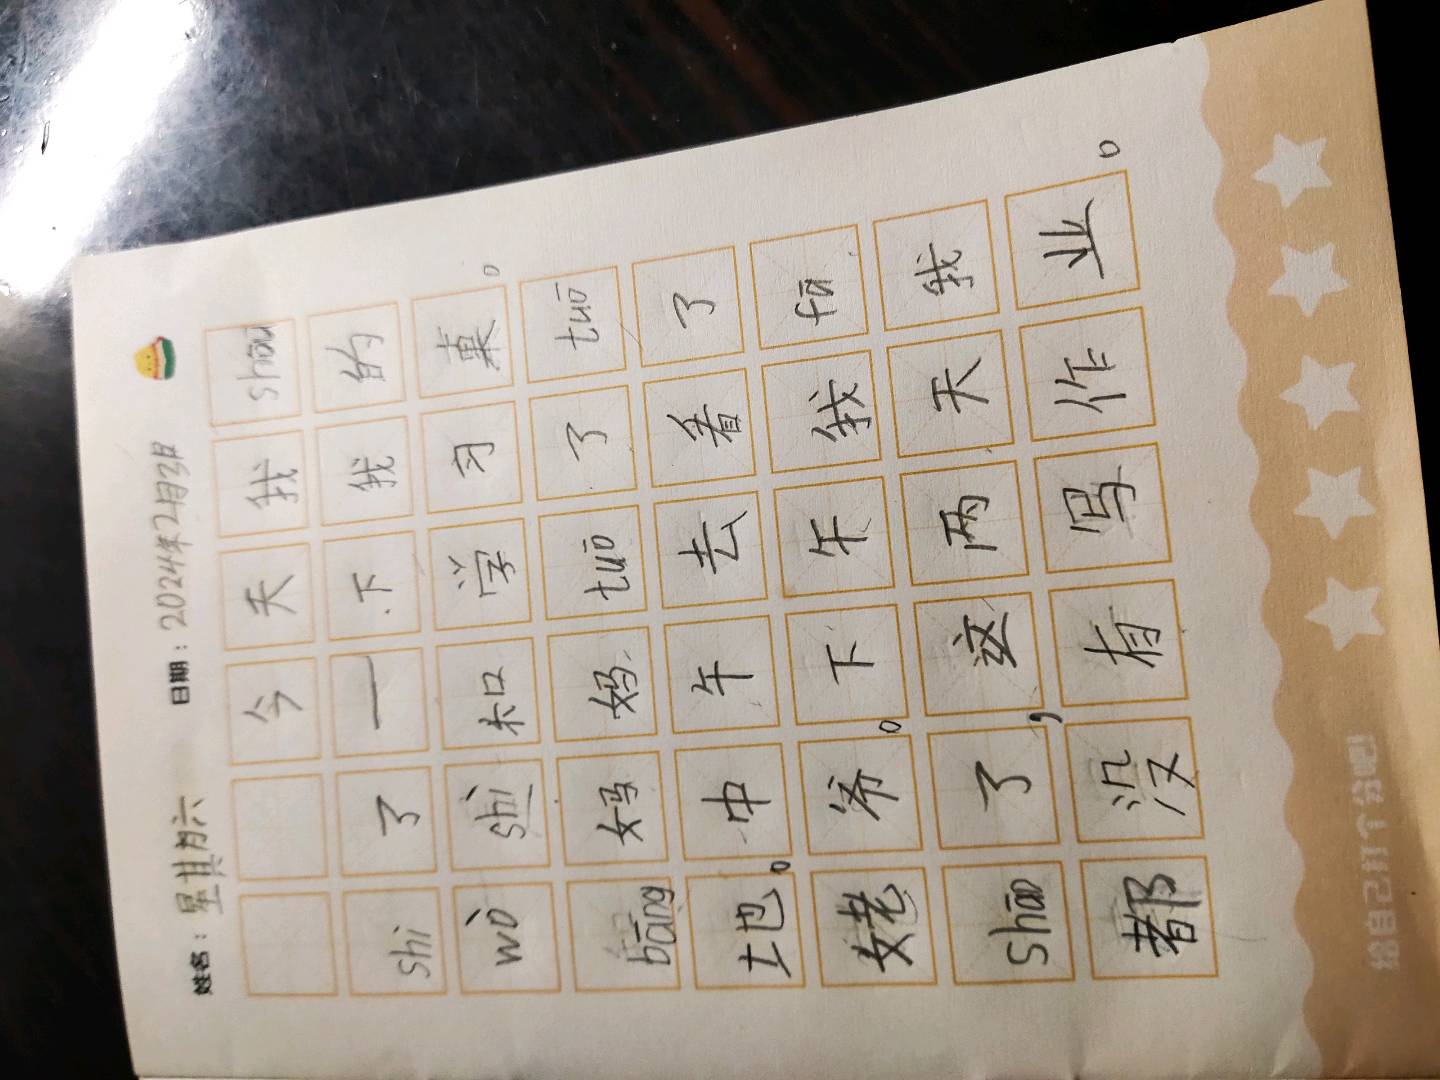 姓名：星期六 日期：2024年2月3日
今天我shōu
shi了一下我的
wò shì和学习桌。
bāng妈妈tuō了tuō
地。中午去看了
姥爷。下午我fā
shāo了，这两天我
都没有写作业。
给自己打个分吧